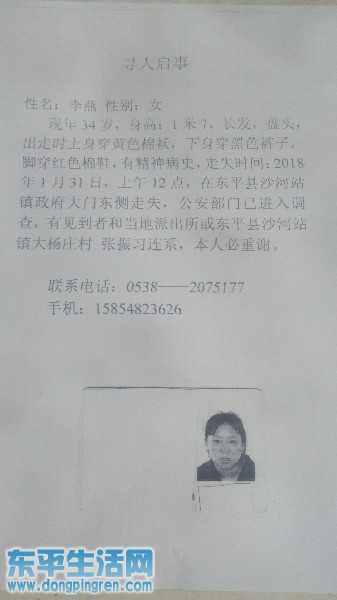 寻人启事
姓名：李燕 性别：女
现年 34 岁，身高：1 米 7，长发，盘头，
出走时上身穿黄色棉袄，下身穿黑色裤子，
脚穿红色棉鞋，有精神病史，走失时间：2018
年 1 月 31 日，上午 12 点，在东平县沙河站
镇政府大门东侧走失，公安部门已进入调
查，有见到者和当地派出所或东平县沙河站
镇大杨庄村 张振习连系，本人必重谢。
联系电话：0538——2075177
手机：15854823626
东平生活网
www.dongpingren.com